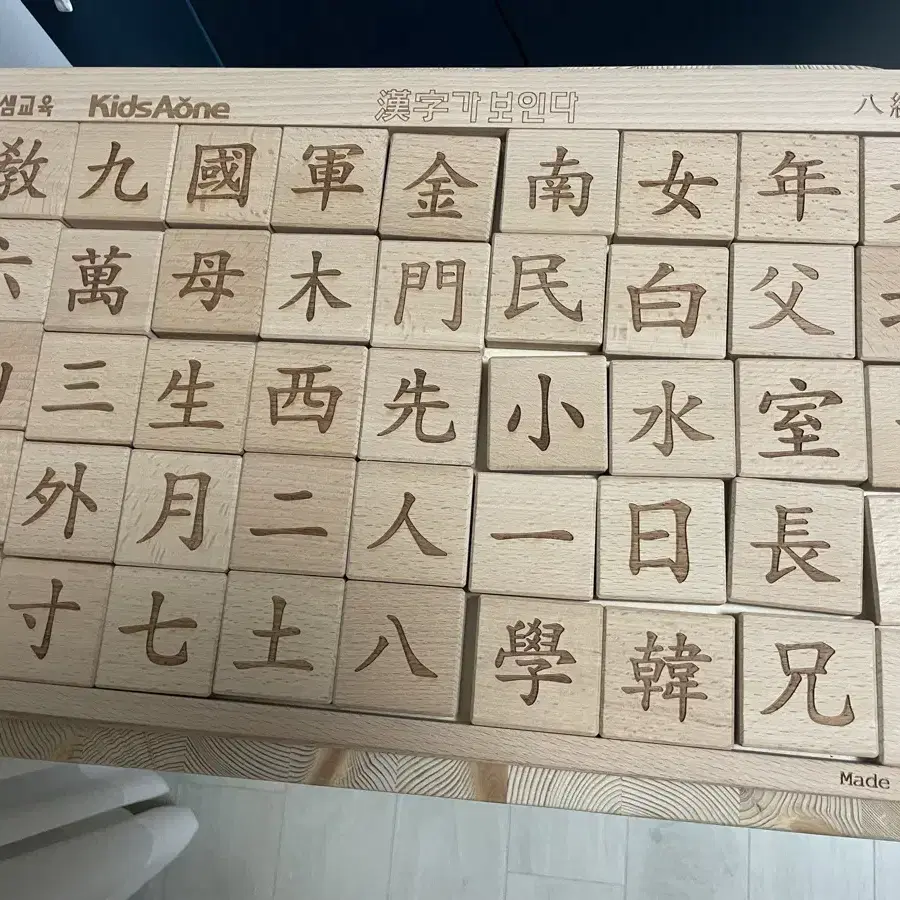 샘교육 KidsAone 漢字가 보인다 八
敎 九 國 軍 金 南 女 年
六 萬 母 木 門 民 白 父
三 生 西 先 小 水 室
外 月 二 人 一 日 長
寸 七 土 八 學 韓 兄
Made